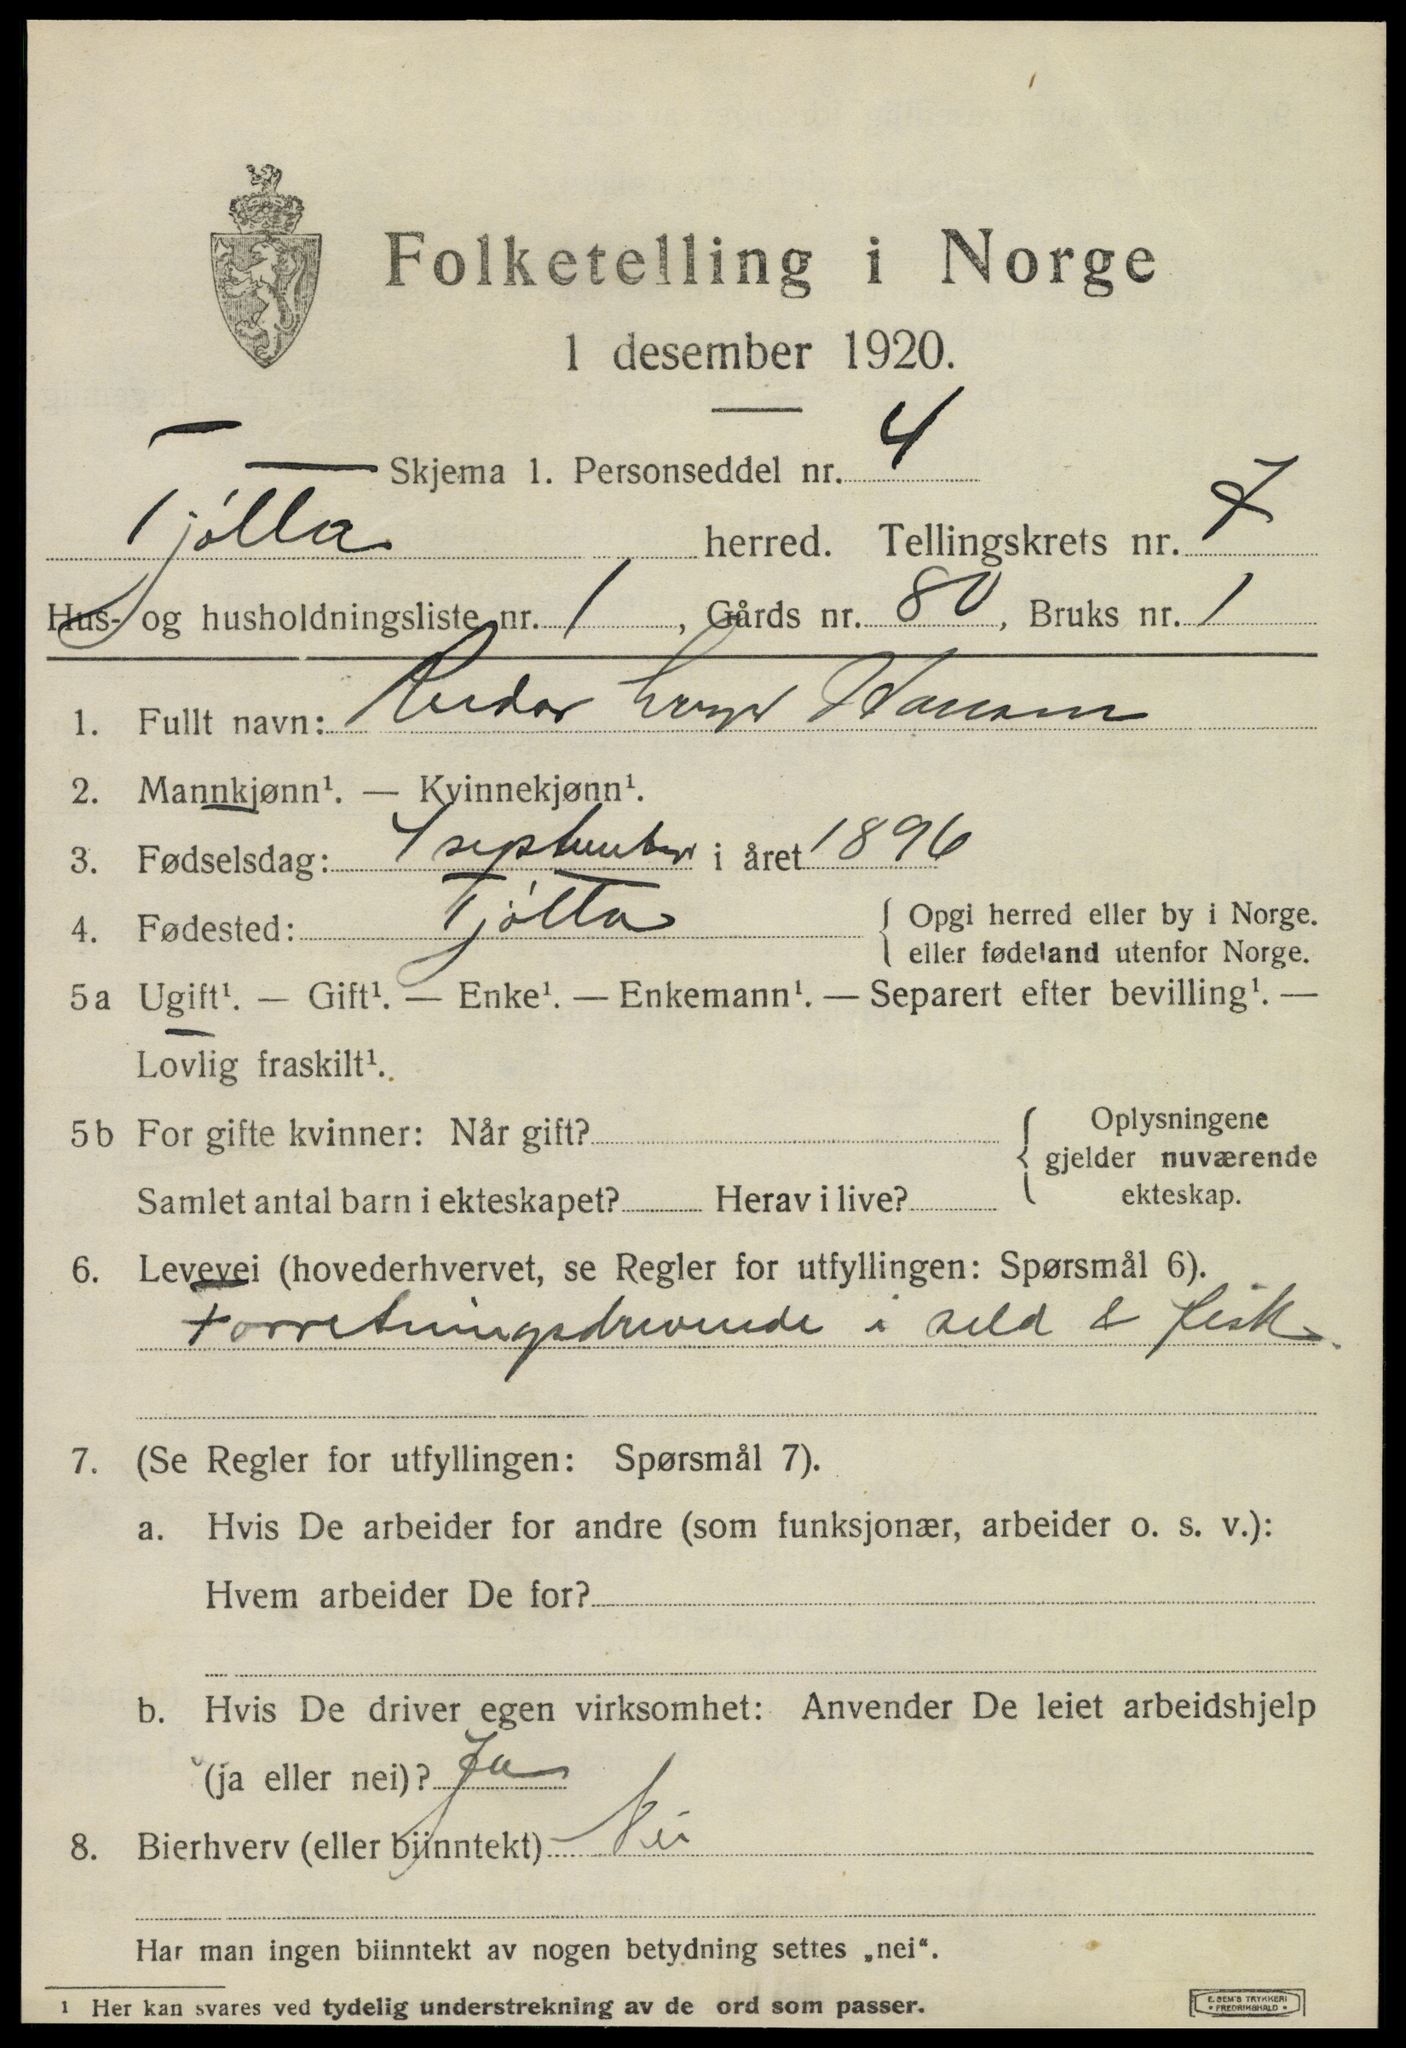 Folketelling i Norge
1 desember 1920.
Skjema 1. Personseddel nr. 4
Tjøtta herred. Tellingskrets nr. 7
Hus- og husholdningsliste nr. 1, Gårds nr. 80, Bruks nr. 1
1. Fullt navn: Hansen
2. Mannkjønn¹. — Kvinnekjønn¹.
3. Fødselsdag: 4 september i året 1896
4. Fødested: Tjøtta { Opgi herred eller by i Norge.
eller fødeland utenfor Norge.
5a Ugift¹. — Gift¹. — Enke¹. — Enkemann¹. — Separert efter bevilling¹. —
Lovlig fraskilt¹.
5b For gifte kvinner: Når gift? { Oplysningene
gjelder nuværende
ekteskap.
Samlet antal barn i ekteskapet? Herav i live?
6. Levevei (hovederhvervet, se Regler for utfyllingen: Spørsmål 6).
Forretningsdrivende i sild & fisk.
7. (Se Regler for utfyllingen: Spørsmål 7).
a. Hvis De arbeider for andre (som funksjonær, arbeider o. s. v.):
Hvem arbeider De for?
b. Hvis De driver egen virksomhet: Anvender De leiet arbeidshjelp
(ja eller nei)? Ja
8. Bierhverv (eller biinntekt) Nei
Har man ingen biinntekt av nogen betydning settes „nei“.
1 Her kan svares ved tydelig understrekning av de ord som passer.
E. SEM'S TRYKKERI
• FREDRIKSHALD •